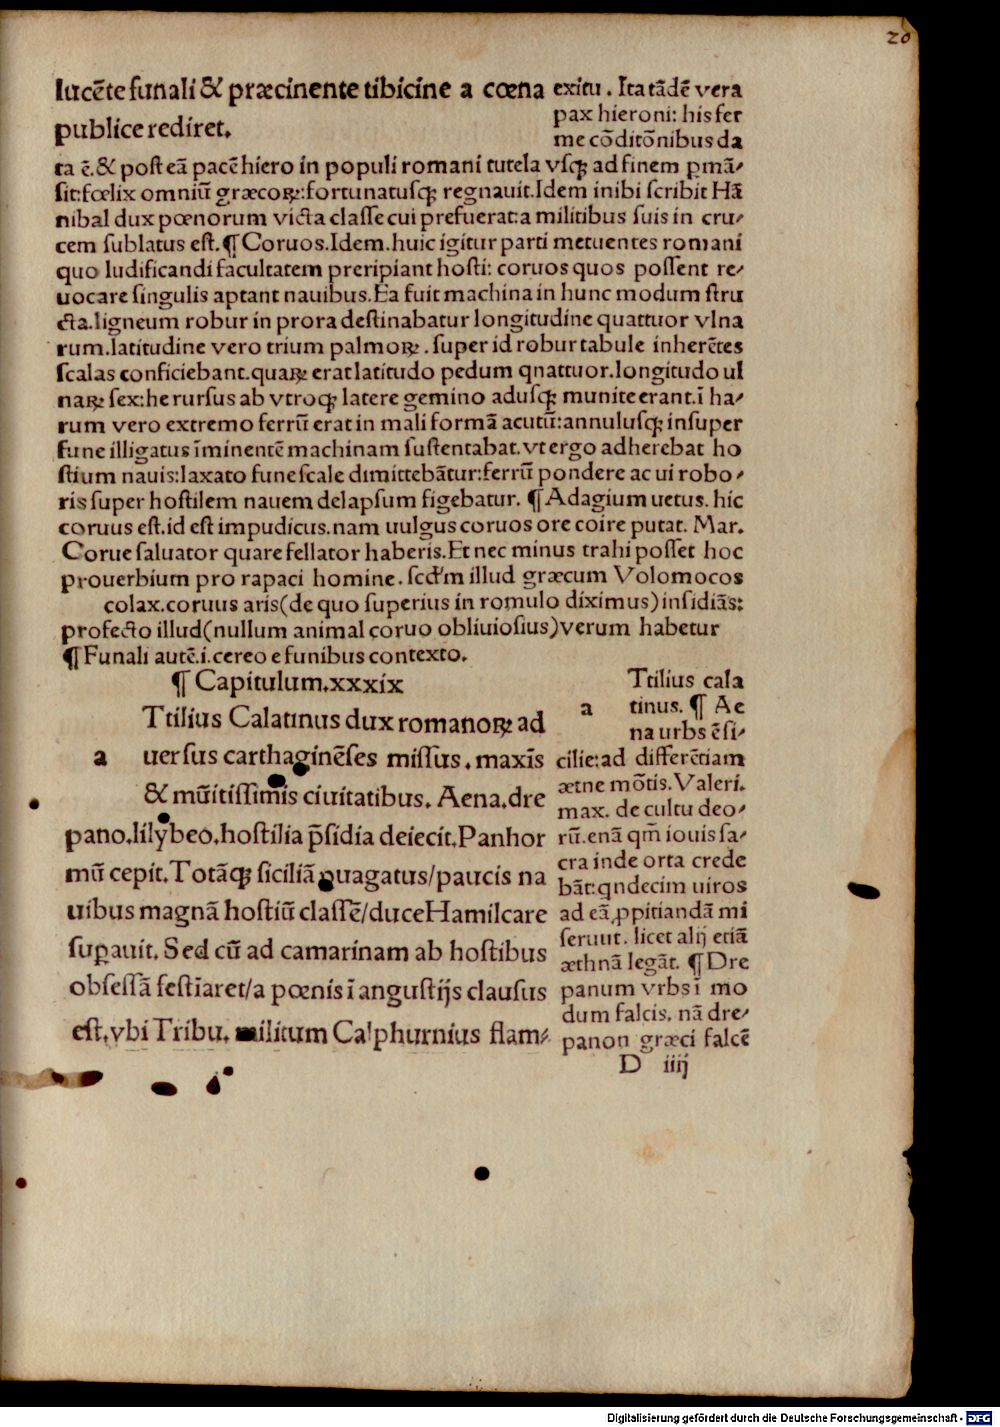 20
lucēte funali & præcinente tibicine a cœna
publice rediret.
exitu. Ita tādē vera
pax hieroni: his fer
me cōditōnibus da
ta ē.& post eā pacē hiero in populi romani tutela vsq̢ ad finem ꝑmā⸗
sit:fœlix omniū græcoꝝ:fortunatusq̢ regnauit.Idem inibi scribit Hā
nibal dux pœnorum victa classe cui prefuerat:a militibus suis in cru⸗
cem sublatus est.¶Coruos.Idem.huic igitur parti metuentes romani
quo ludificandi facultatem preripiant hosti: coruos quos possent re⸗
uocare singulis aptant nauibus.Ea fuit machina in hunc modum stru
cta.ligneum robur in prora destinabatur longitudine quattuor vlna
rum.latitudine vero trium palmoꝝ. super id robur tabule inherētes
scalas conficiebant.quaꝝ erat latitudo pedum qnattuor.longitudo ul
naꝝ sex:he rursus ab vtroq̢ latere gemino adusq̢ munite erant.ī ha⸗
rum vero extremo ferrū erat in mali formā acutū:annulusq̢ insuper
fune illigatus īminentē machinam sustentabat.vt ergo adherebat ho
stium nauis:laxato fune scale dimittebātur:ferrū pondere ac ui robo⸗
ris super hostilem nauem delapsum figebatur. ¶Adagium uetus. hic
coruus est.id est impudicus.nam uulgus coruos ore coire putat. Mar.
Corue saluator quare fellator haberis.Et nec minus trahi posset hoc
prouerbium pro rapaci homine. scd'm illud græcum Volomocos
colax.coruus aris(de quo superius in romulo diximus)insidiās:
profecto illud(nullum animal coruo obliuiosius)verum habetur
¶Funali autē.i.cereo e funibus contexto.
¶Capitulum.xxxix
a
Ttilius Calatinus dux romanoꝝ ad
uersus carthaginēses missus. maxīs
& mūitissimis ciuitatibus. Aena.dre
pano.lilybeo.hostilia p̄sidia deiecit.Panhor
mū cepit.Totāq̢ siciliā ꝑuagatus/paucis na
uibus magnā hostiū classē/duce Hamilcare
suꝑauit. Sed cū ad camarinam ab hostibus
obsessā festiaret/a pœnis ī angustijs clausus
est.vbi Tribu. militum Calphurnius flam⸗
a
Ttilius cala
tinus.¶ Ae
na urbs ē si⸗
cilie:ad differētiam
ætne mōtis.Valeri.
max. de cultu deo⸗
rū.enā qm̄ iouis sa⸗
cra inde orta crede
bāt:qndecim uiros
ad eā ꝓpitiandā mi
serunt. licet alij etiā
æthnā legāt. ¶Dre
panum vrbs ī mo
dum falcis. nā dre⸗
panon græci falcē
D iiij
Digitalisierung gefördert durch die Deutsche Forschungsgemeinschaft - DFG